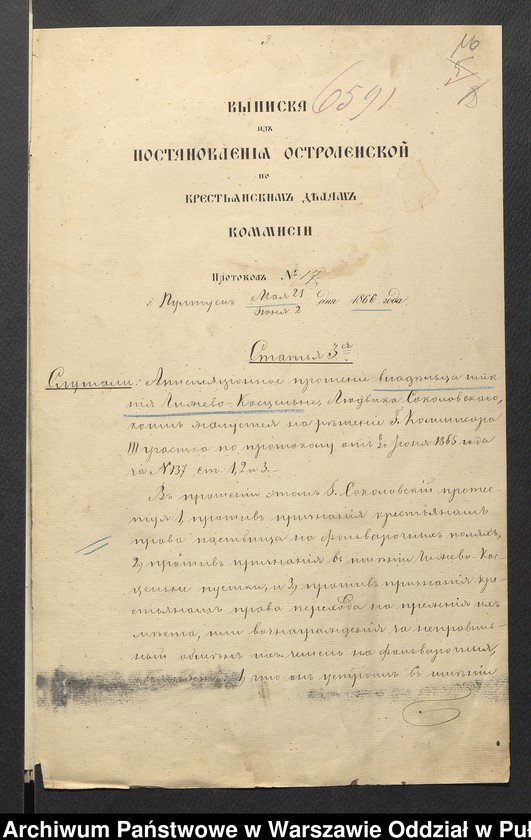 3.
16
5
18
6591
ВЫПИСКА
ИЗЪ
ПОСТАНОВЛЕНІЯ ОСТРОЛЕНСКОЙ
ПО
КРЕСТЬЯНСКИМЪ ДѢЛАМЪ
КОММИСІИ
Протоколъ № 17.
г. Пултускъ Мая 21 / Іюня 2 дня 1866 года
Статья 3ья
Слушали: Аппеляціонное прошеніе владѣльца имѣ-
нія Чижево-Косцельне, Людвика Соколовскаго,
жалуется на рѣшеніе Г. Коммисара
III участка по протоколу отъ Іюня 1865 года
за № 137 ст. 1, 2 и 3.
Въ прошеніи этомъ Г. Соколовскій протес-
туя: 1, противъ признанія крестьянамъ
права пастбища на фольварочныхъ поляхъ,
2, противъ признанія въ имѣніи Чижево-Кос-
цельне пустки, и 3, противъ признанія кре-
стьянамъ права перехода на прежнія ихъ
мѣста, или вознагражденія за неправиль-
ный обмѣнъ ихъ земель на фольварочныя,
1, что онъ устроилъ въ имѣніи
Archiwum Państwowe w Warszawie Oddział w Puł